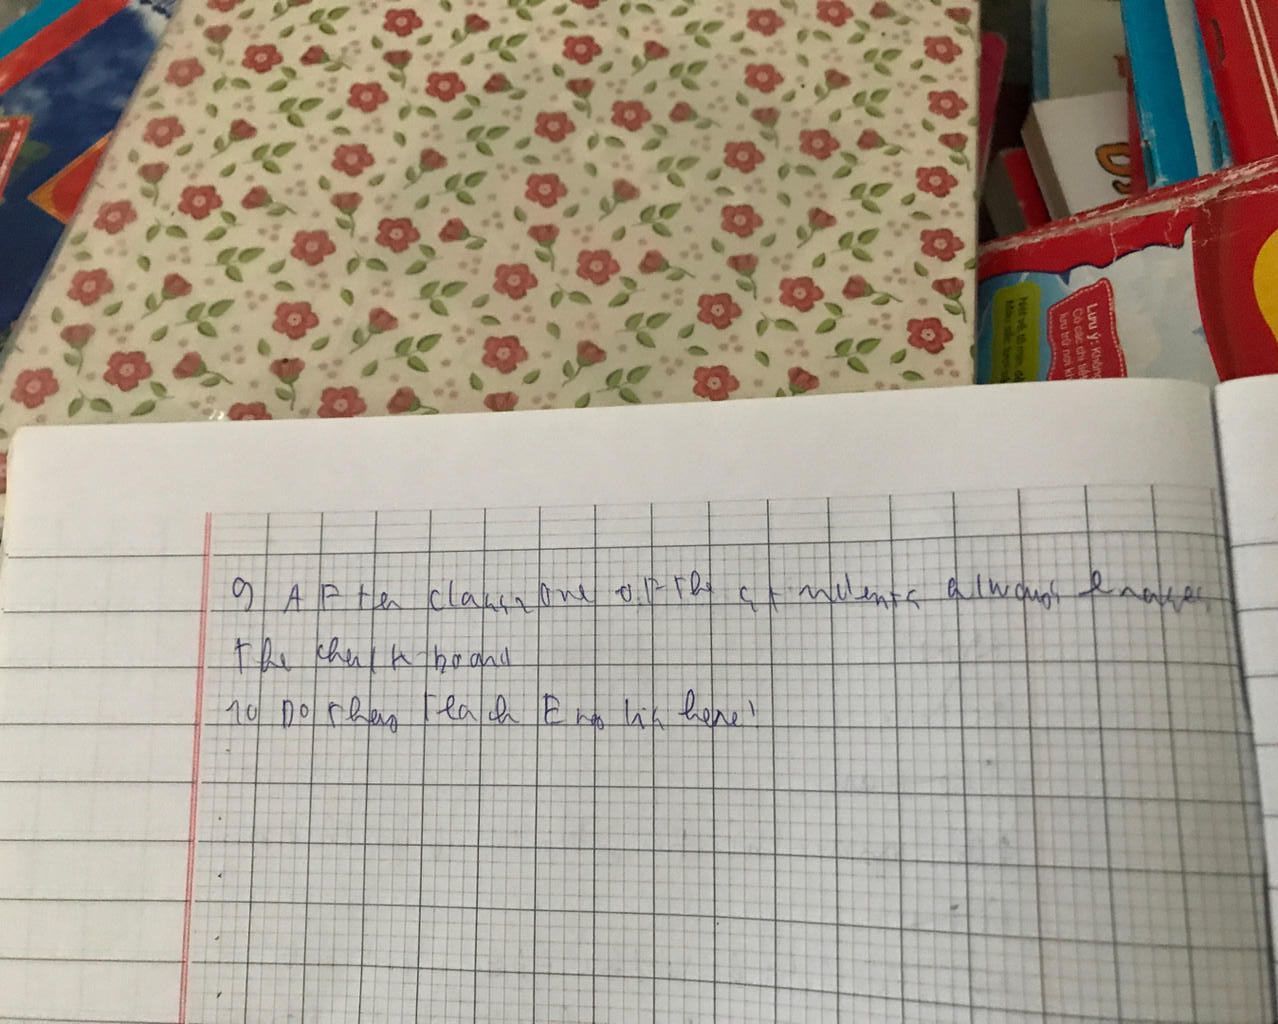 9 After class, one of the students always erases
the chalk board
10 Do they teach English here?
Lưu ý: Không